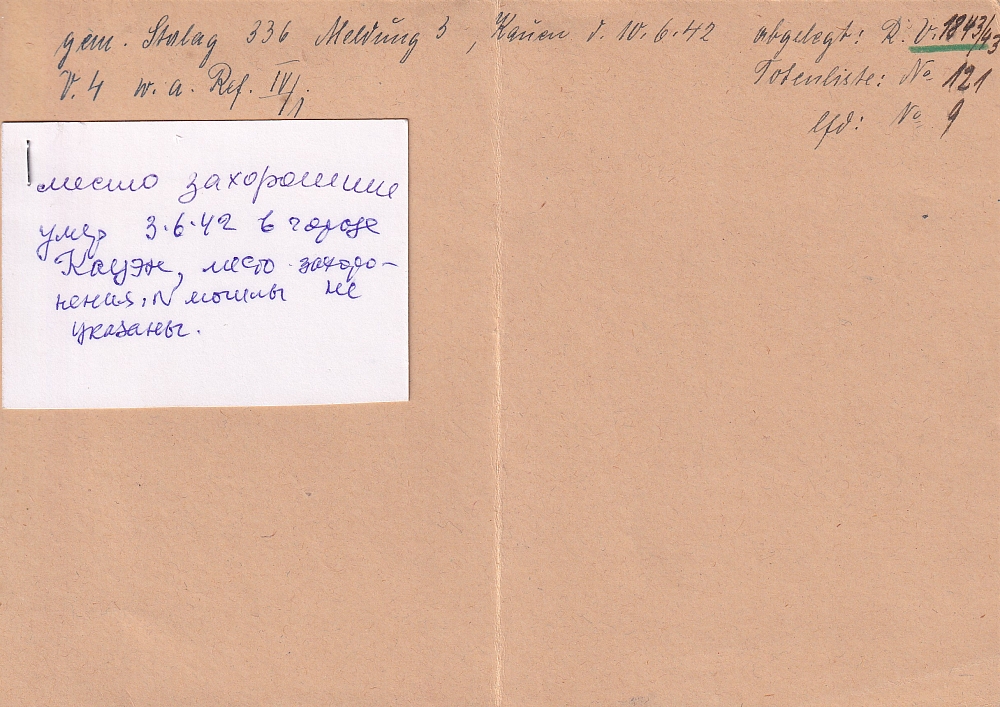 gem. Stalag 336 Meldung 3, Kauen d. 10.6.42 abgelegt: R: V. 1843/43
V. 4 w. a. Ref. IV/1.
Totenliste: No 121
lfd: No 9
место захоронение
умер 3.6.42 в городе
Кауэн, место захоро-
нения, N могилы не
указаны.